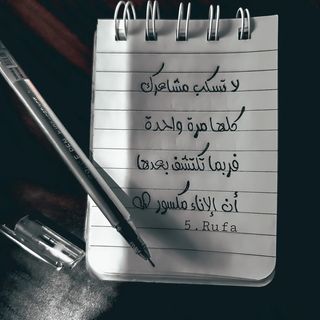 لا تسكب مشاعرك
كلها مرة واحدة
فربما تكتشف بعدها
أن الإناء مكسور
5.Rufa